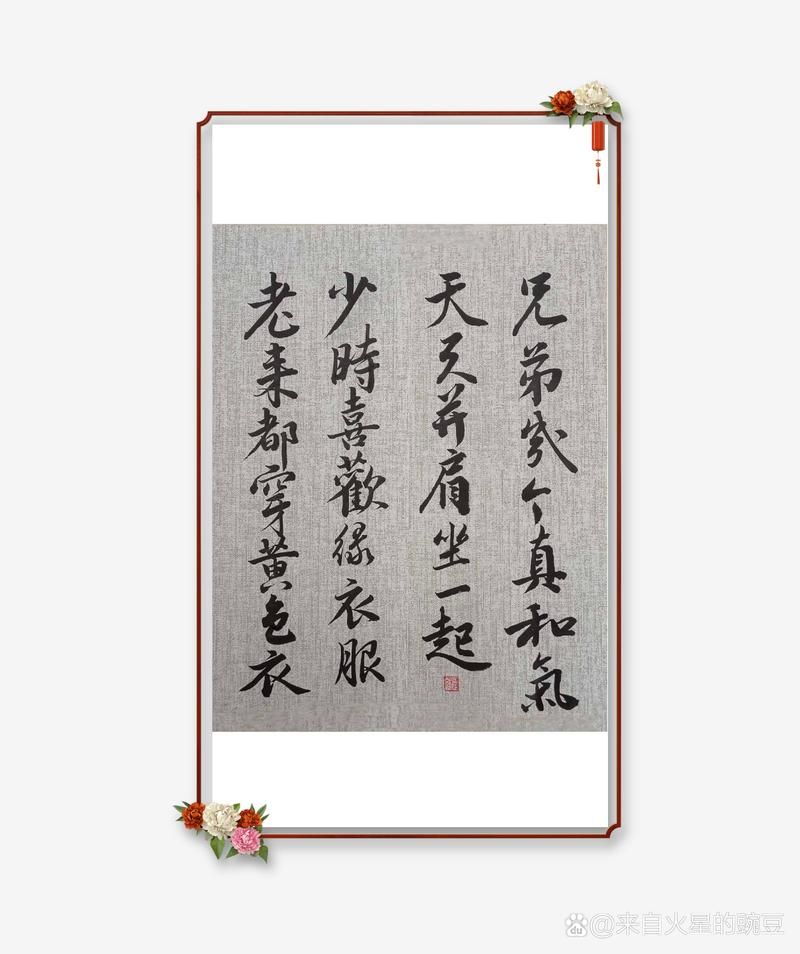 兄弟幾个真和氣
天天并肩坐一起
少時喜歡緑衣服
老来都穿黄色衣
du @来自火星的豌豆